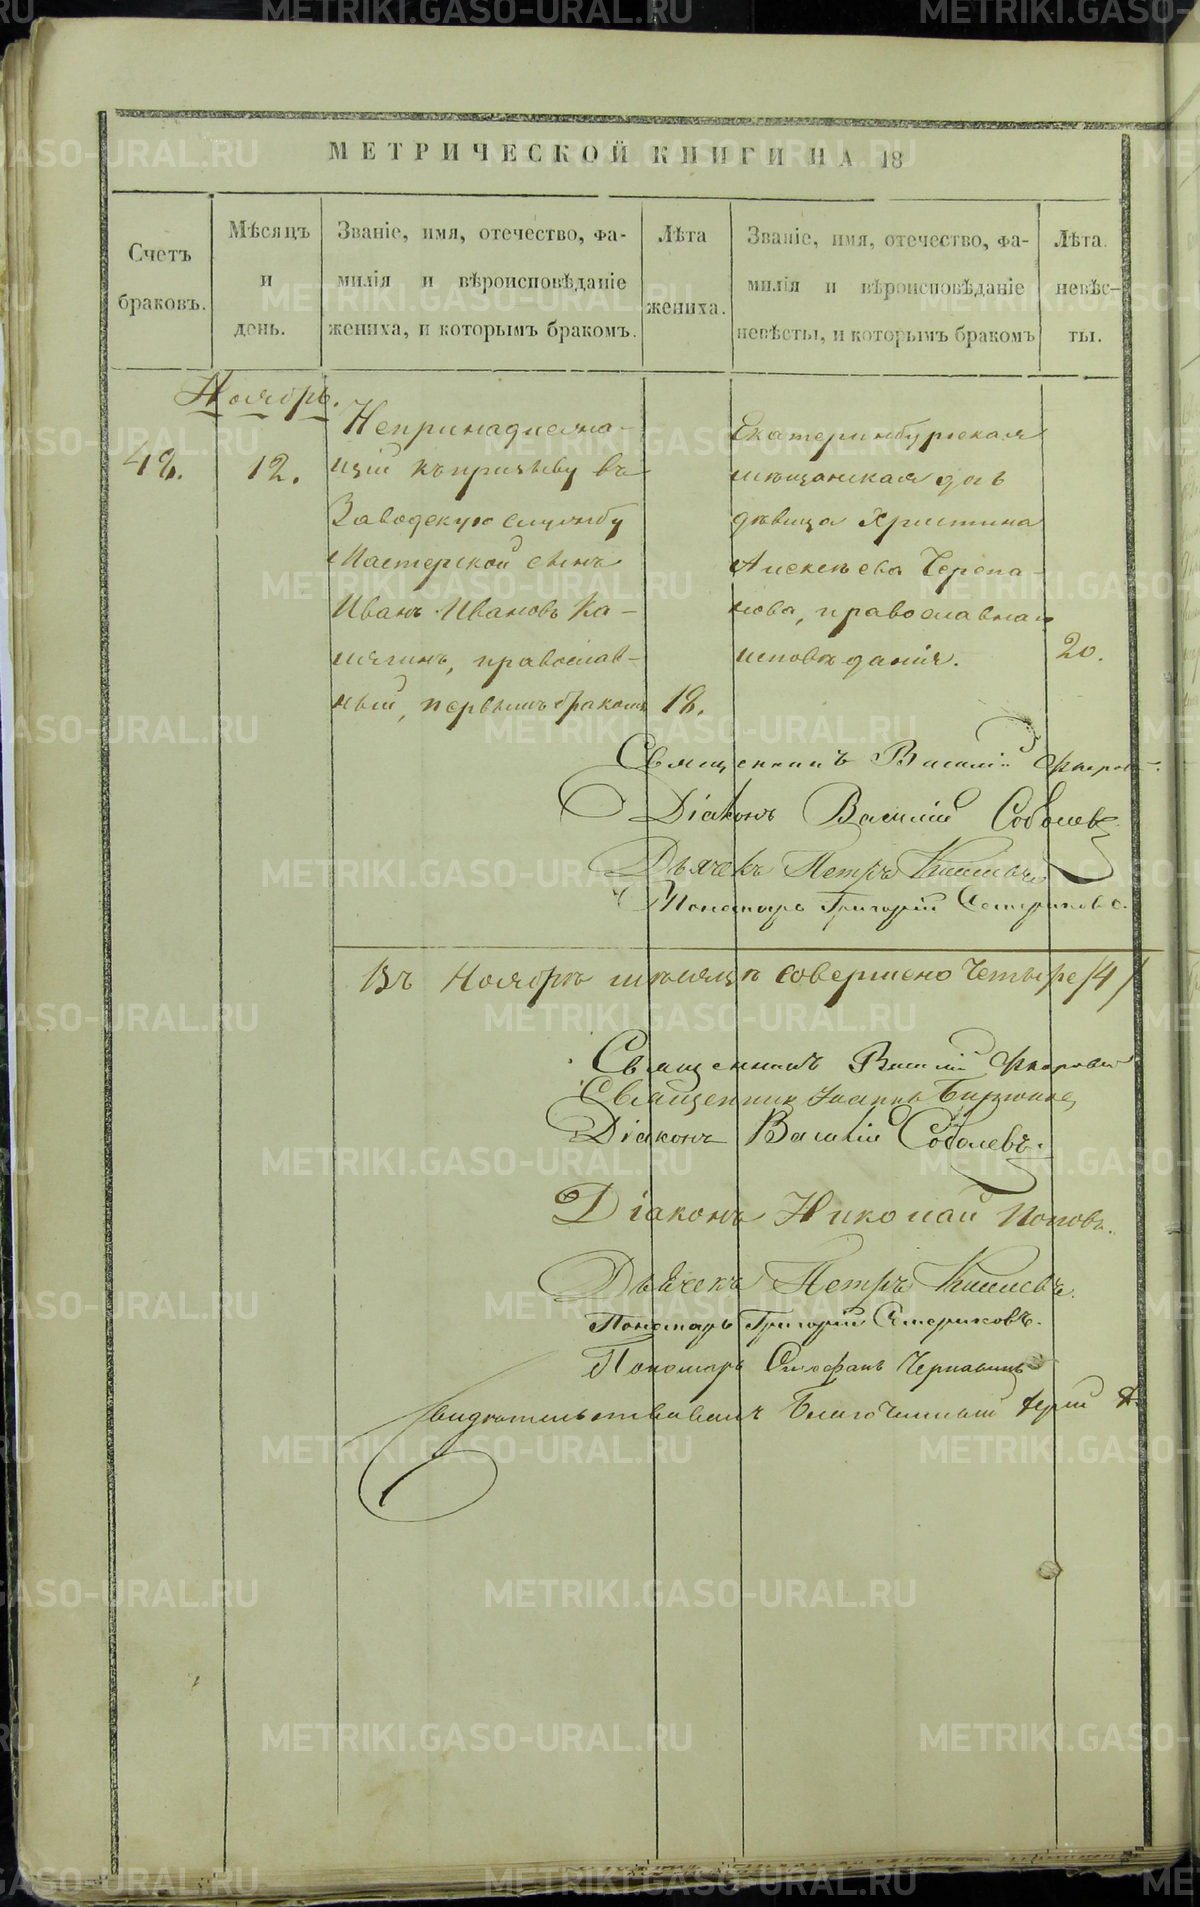 МЕТРИЧЕСКОЙ КНИГИ НА 18
Счетъ браковъ.
Мѣсяцъ и день.
Званіе, имя, отечество, фа-
милія и вѣроисповѣданіе
жениха, и которымъ бракомъ.
Лѣта жениха.
Званіе, имя, отечество, фа-
милія и вѣроисповѣданіе
невѣсты, и которымъ бракомъ
Лѣта.
невѣс-
ты.
Ноябрь.
48.
12.
Непринадлежа-
щій къ призыву въ
Заводскую службу
Мастерской сынъ
Иванъ Ивановъ Ка-
милинъ, православ-
ный, первымъ бракомъ
18.
Екатеринбургская
мѣщанская дочь
дѣвица Христина
Алексѣева Черепа-
нова, православнаго
исповѣданія.
20.
Священникъ Василій
Діаконъ Василій Соболевъ
Дьячекъ Петръ
Пономарь Григорій
Въ Ноябрѣ мѣсяцѣ совершено Четыре /4/
Священникъ Василій
Священникъ Іоаннъ
Діаконъ Василій Соболевъ.
Діаконъ Николай Поповъ.
Дьячекъ Петръ
Пономарь Григорій
Пономарь Стефанъ Чернавинъ
Свидѣтельствовалъ Благочинный Іерей